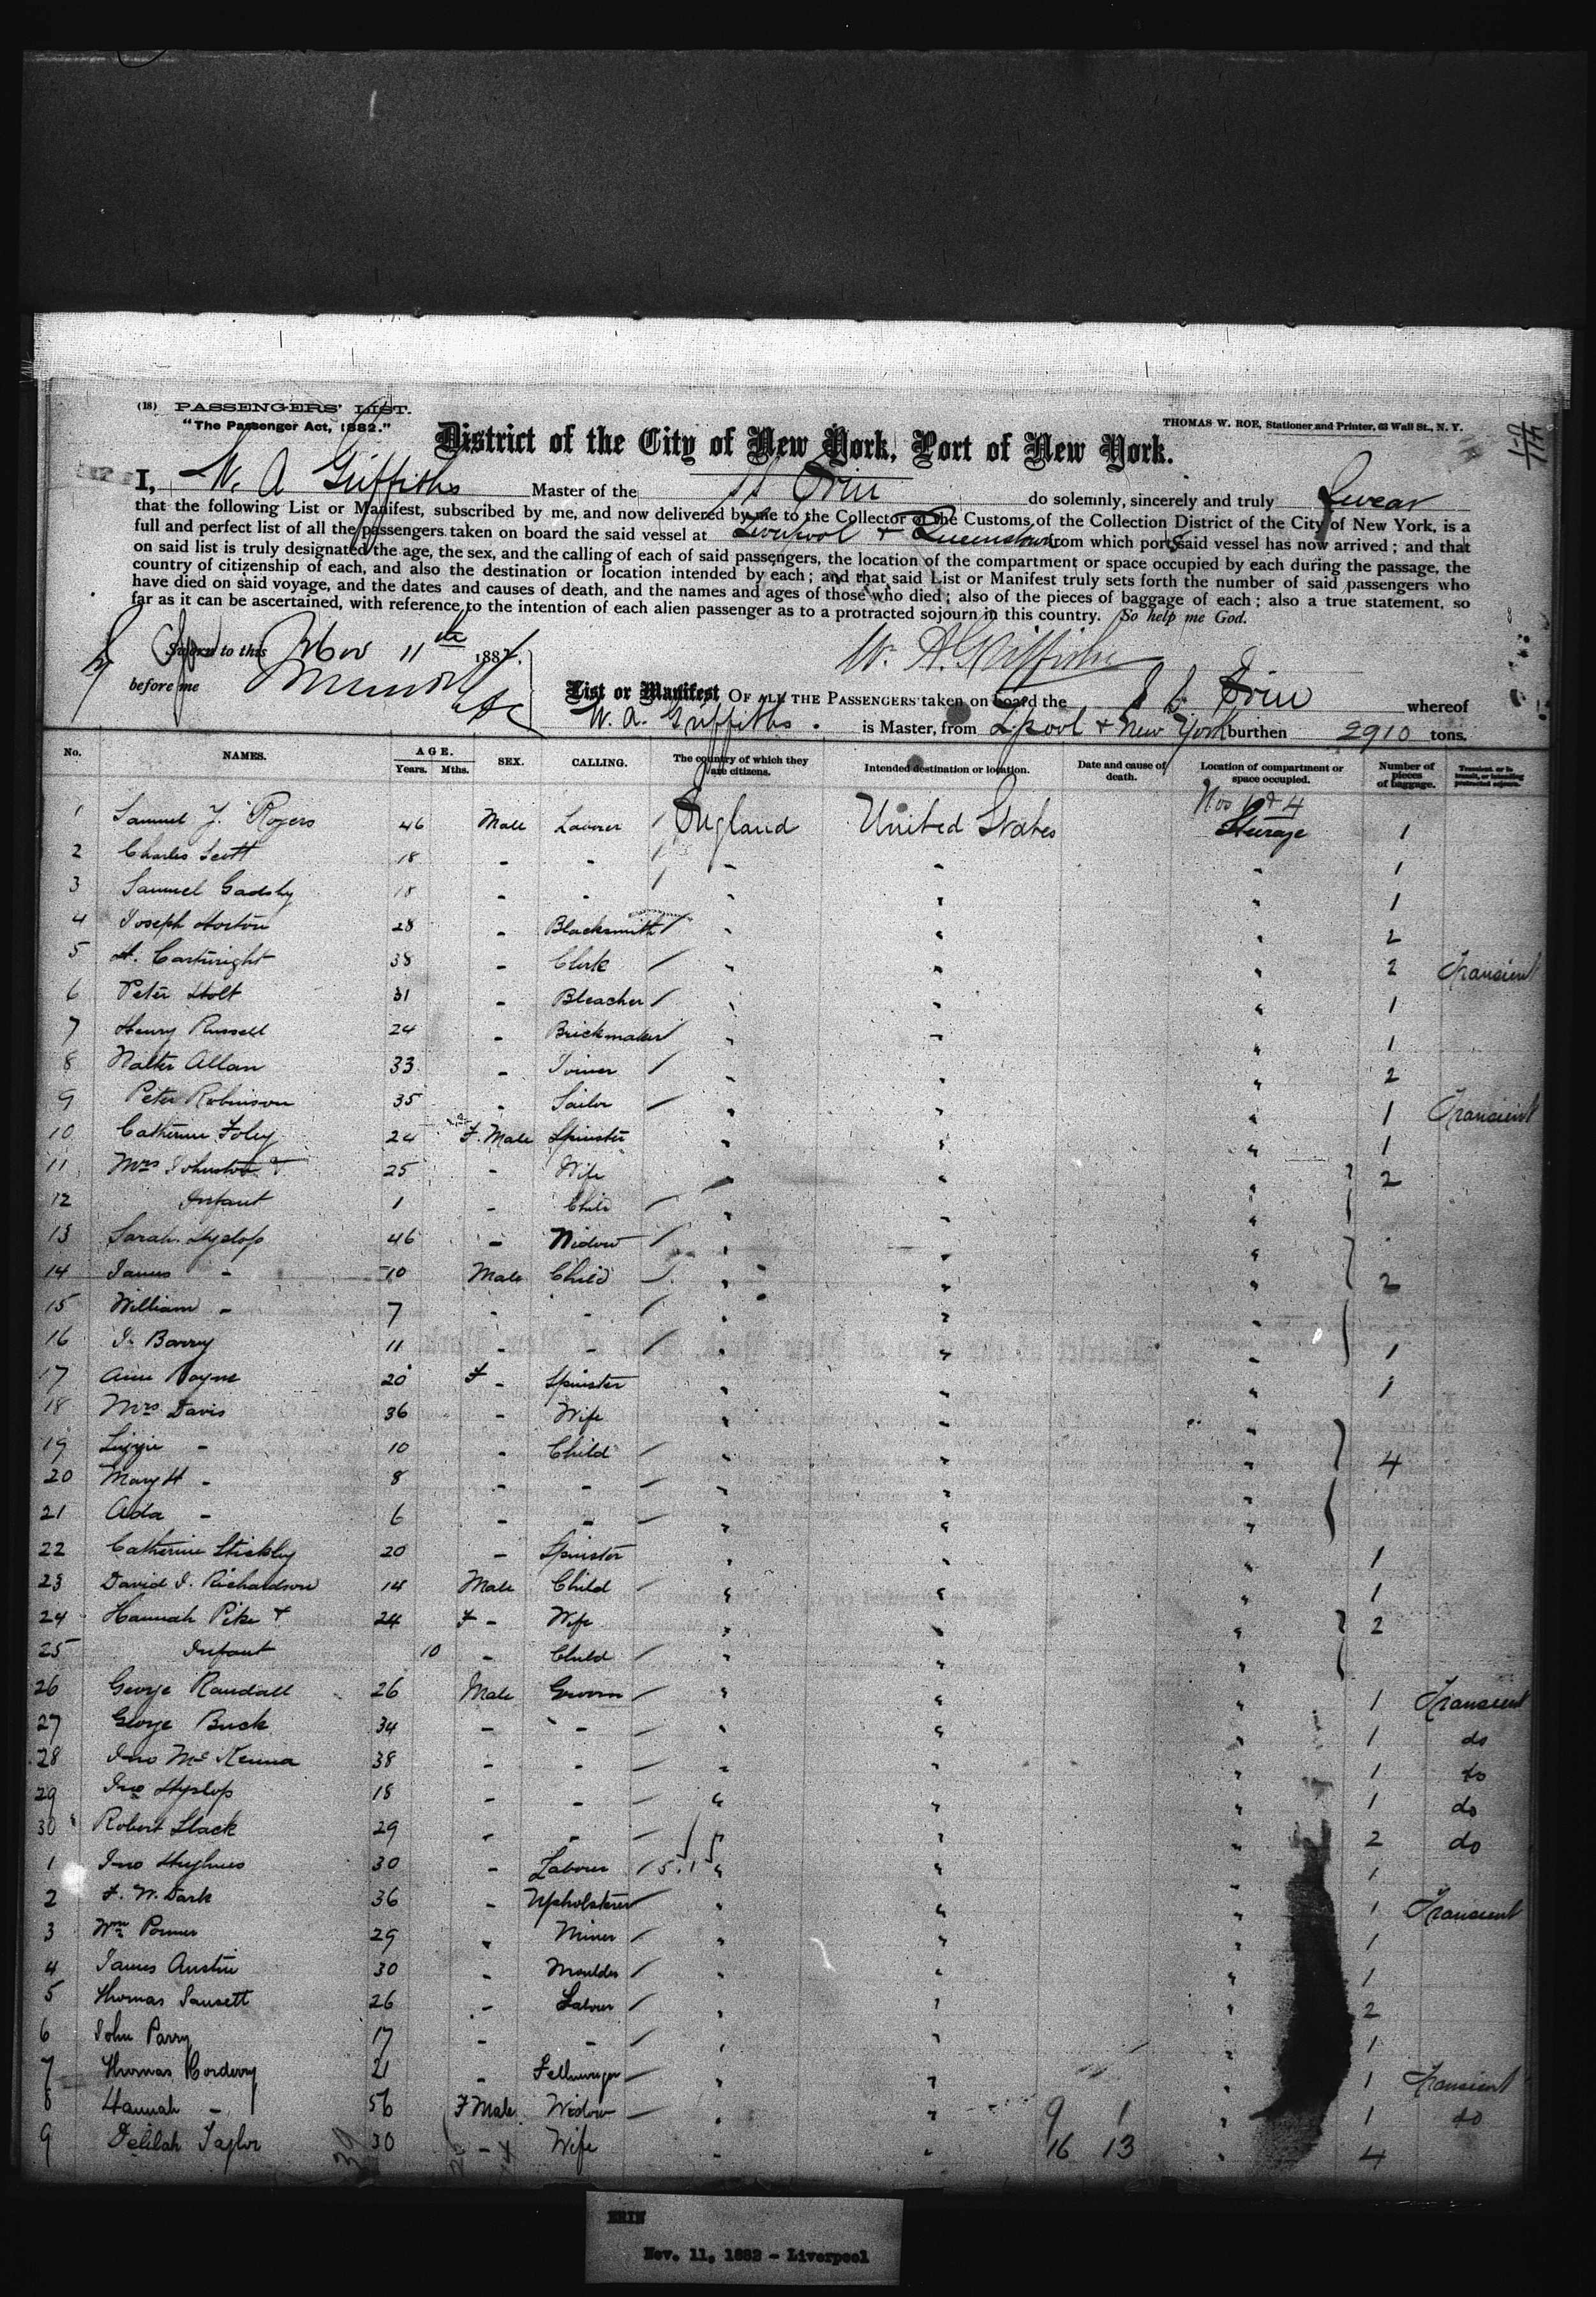 (18) PASSENGERS' LIST.
"The Passenger Act, 1882."
THOMAS W. ROE, Stationer and Printer, 63 Wall St., N. Y.
District of the City of New York, Port of New York.
I, W. A Griffiths Master of the SS Erin do solemnly, sincerely and truly Swear
that the following List or Manifest, subscribed by me, and now delivered by me to the Collector of the Customs of the Collection District of the City of New York, is a
full and perfect list of all the passengers taken on board the said vessel at Liverpool + Queenstown from which ports said vessel has now arrived; and that
on said list is truly designated the age, the sex, and the calling of each of said passengers, the location of the compartment or space occupied by each during the passage, the
country of citizenship of each, and also the destination or location intended by each; and that said List or Manifest truly sets forth the number of said passengers who
have died on said voyage, and the dates and causes of death, and the names and ages of those who died; also of the pieces of baggage of each; also a true statement, so
far as it can be ascertained, with reference to the intention of each alien passenger as to a protracted sojourn in this country. So help me God.
Sworn to this Nov 11th 1882.
W. A. Griffiths
before me
List or Manifest OF ALL THE PASSENGERS taken on board the S S. Erin whereof
W. A. Griffiths. is Master, from L.pool + New York burthen 2910 tons.
No. NAMES. AGE. Years. Mths. SEX. CALLING. The country of which they are citizens. Intended destination or location. Date and cause of death. Location of compartment or space occupied. Number of pieces of baggage. Transient, or in transit, or intending protracted sojourn.
Nos 1 & 4
1 Samuel J. Rogers 46 Male Labourer England United States Steerage 1
2 Charles Scott 18 - - - " " 1
3 Samuel Gadsby 18 - - " " " 1
4 Joseph Horton 28 - Blacksmith " " " 2
5 A. Cartwright 38 - Clerk " " " 2 Transient
6 Peter Holt 31 - Bleacher " " " 1
7 Henry Russell 24 - Brickmaker " " " 1
8 Walter Allan 33 - Joiner " " " 2
9 Peter Robinson 35 - Sailor " " " 1 Transient
10 Catherine Foley 24 F. Male Spinster " " " 1
11 Mrs Johnston + 25 - Wife " " " 2
12 Infant 1 - Child " " "
13 Sarah Hyslop 46 - Widow " " "
14 James - 10 Male Child " " " 2
15 William - 7 - - " " "
16 J. Barry 11 - - " " " 1
17 Ann Payne 20 F - Spinster " " " 1
18 Mrs Davis 36 - Wife " " "
19 Lizzie - 10 - Child " " " 4
20 Mary H - 8 - - " " "
21 Ada - 6 - - " " "
22 Catherine Stickley 20 - Spinster " " " 1
23 David J. Richardson 14 Male Child " " " 1
24 Hannah Pike + 24 F - Wife " " " 2
25 Infant 10 - Child " " "
26 George Randall 26 Male Groom " " " 1 Transient
27 George Buck 34 - - " " " 1 do
28 Jno McKenna 38 - - " " " 1 do
29 Jno Hyslop 18 - - " " " 1 do
30 Robert Slack 29 - - " " " 2 do
1 Jno Hughes 30 - Labourer " " " 1
2 F. W. Dark 36 - Upholsterer " " " 1 Transient
3 Wm 29 - Miner " " " 1
4 James Austin 30 - Moulder " " " 1
5 Thomas 26 - Labourer " " " 2
6 John Parry 17 - - " " " 1
7 Thomas Corderoy 21 - Fellmonger " " " 1 Transient
8 Hannah - 56 F Male Widow " " " 1 do
9 Delilah Taylor 30 - Wife " " " 4
9 1
16 13
39
ERIN
Nov. 11, 1882 - Liverpool